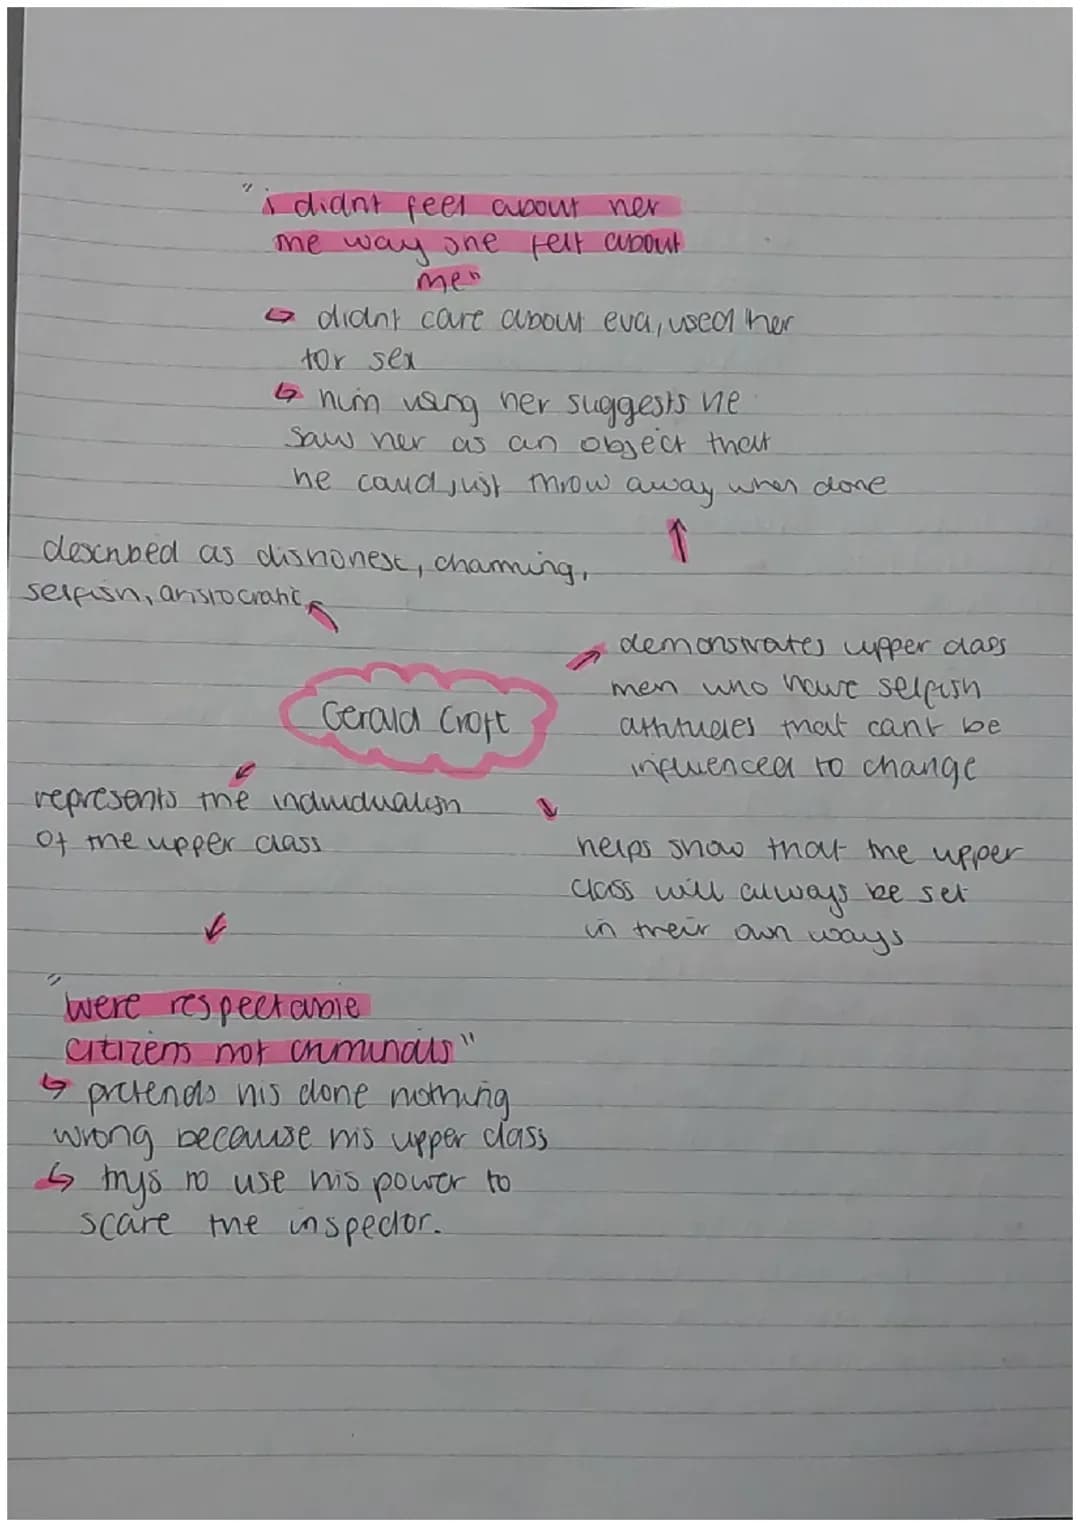 "i didnt feel about her
the way she felt about
me"
↳ didnt care about eva, used her
for sex
↳ him using her suggests he
saw her as an object that
he could just throw away when done
described as dishonest, charming,
selfish, aristocratic
demonstrates upper class
men who have selfish
attitudes that cant be
influenced to change
Gerald Croft
represents the individualism
of the upper class
helps show that the upper
class will always be set
in their own ways
"were respectable
citizens not criminals"
↳ pretends his done nothing
wrong because his upper class
↳ trys to use his power to
scare the inspector.